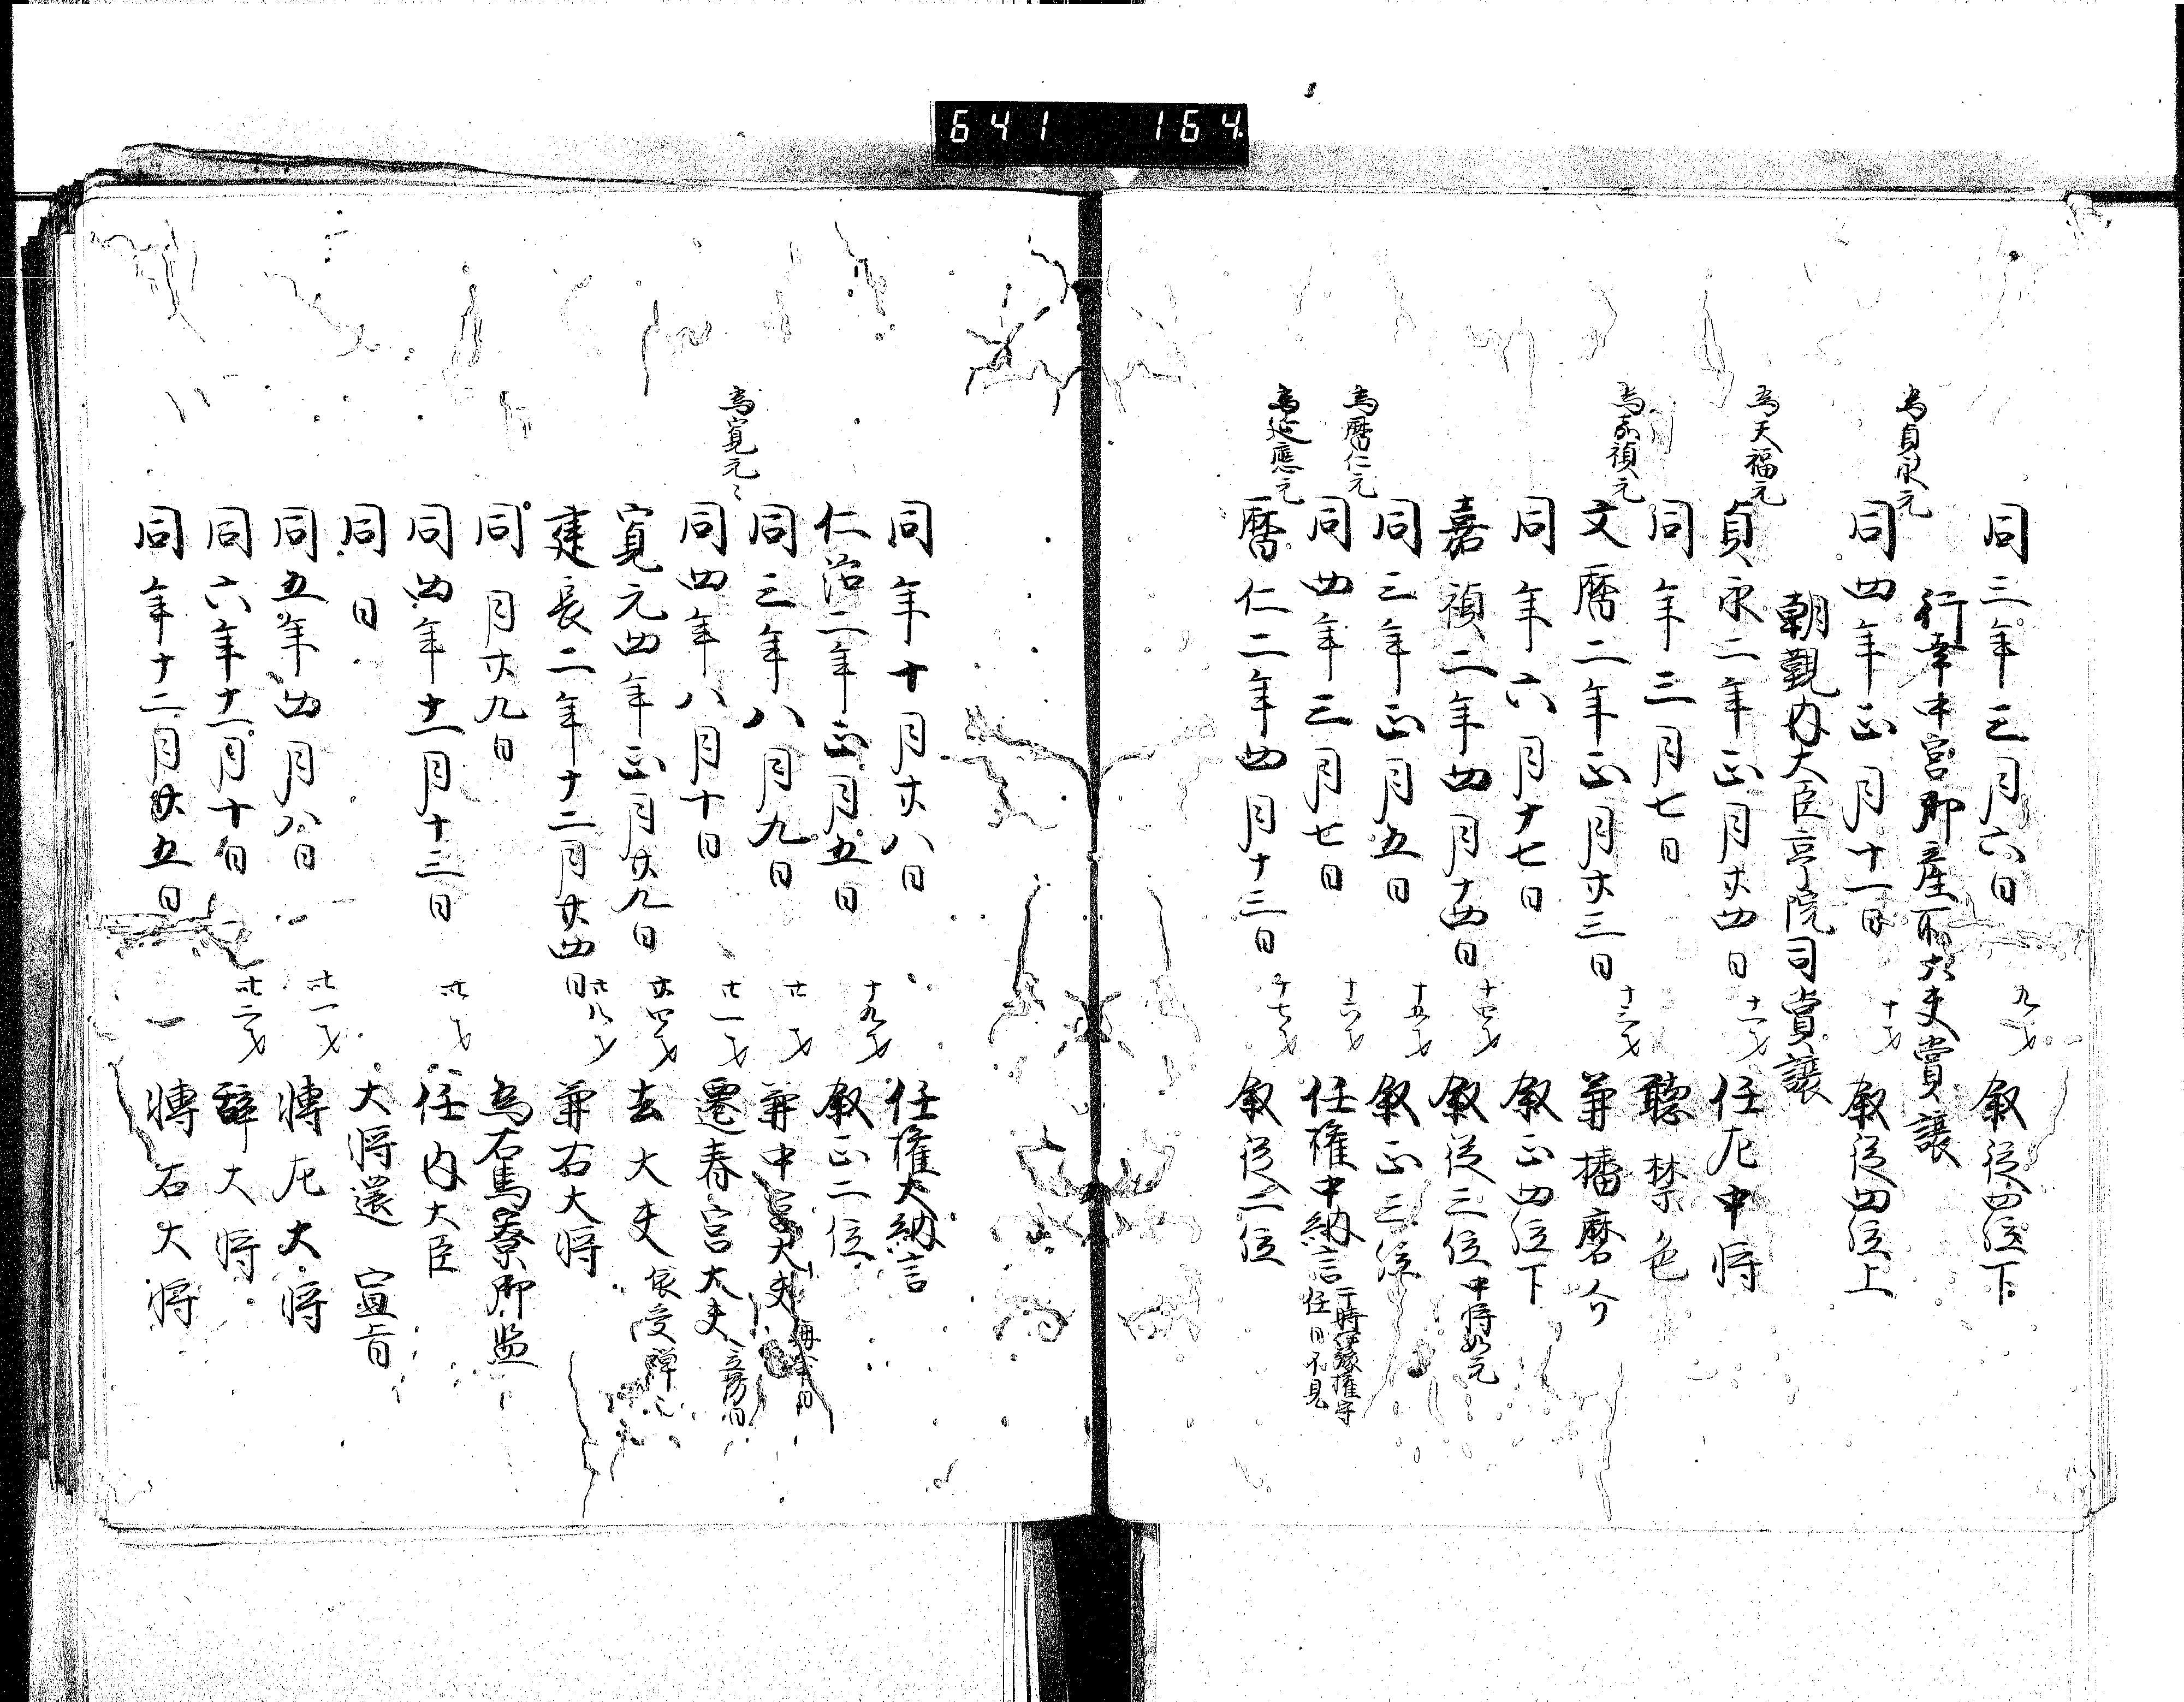 641 164
同三年三月六日 九才 叙従四位下
行幸中宮御産所大夫賞譲
為貞永元
同四年正月十一日 十才 叙従四位上
朝覲内大臣亭院司賞譲
為天福元
貞永二年正月廿四日 十一才 任左中将
同年三月七日 聴禁色
為嘉禎元
文暦二年正月廿三日 十三才 兼播磨介
同年六月十七日 叙正四位下
嘉禎二年四月十四日 十四才 叙従三位中将如元
同三年正月五日 十五才 叙正三位
為暦仁元
同四年三月七日 十六才 任権中納言
于時伊豫権守
任日不見
為延應元
暦仁二年四月十三日 十七才 叙従二位
同年十月廿八日 任権大納言
仁治二年正月五日 十九才 叙正二位
同三年八月九日 廿才 兼中宮大夫
為寛元々
同四年八月十日 廿一才 遷春宮大夫 立坊日
寛元四年正月廿九日 廿四才 去大夫 依受禅也
建長二年十二月廿四日 廿八才 兼右大将
同月廿九日 為右馬寮御監
同四年十一月十三日 卅才 任内大臣
同日 大将還宣旨
同五年四月八日 卅一才 転左大将
同六年十一月十日 卅二才 辞大将
同年十二月廿五日 転右大将